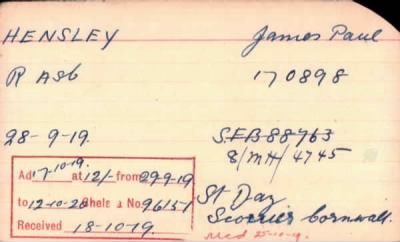 HENSLEY James Paul
R A S C 170898
28-9-19. S.E.B 88763
8/MH/4745
17-10-19.
Ad at 12/- from 29-9-19
to 12-10-20 No 96151
Received 18-10-19.
St Day
Scorrier Cornwall.